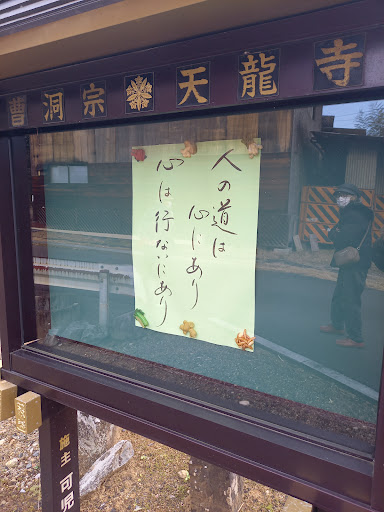 曹洞宗 天龍寺
人の道は
心にあり
心は行ないにあり
施主 可児